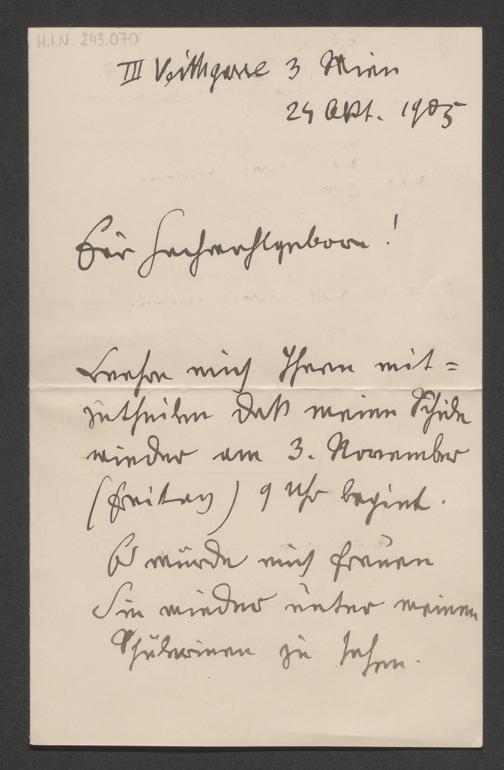 H.I.N. 243.070
III Veithgasse 3 Wien
24 Okt. 1905
Euer Hochwohlgeboren!
Beehre mich Ihnen mit=
zutheilen daß meine Schule
wieder am 3. November
(Freitag) 9 Uhr beginnt.
Es würde mich freuen
Sie wieder unter meinen
Schülerinen zu sehen.